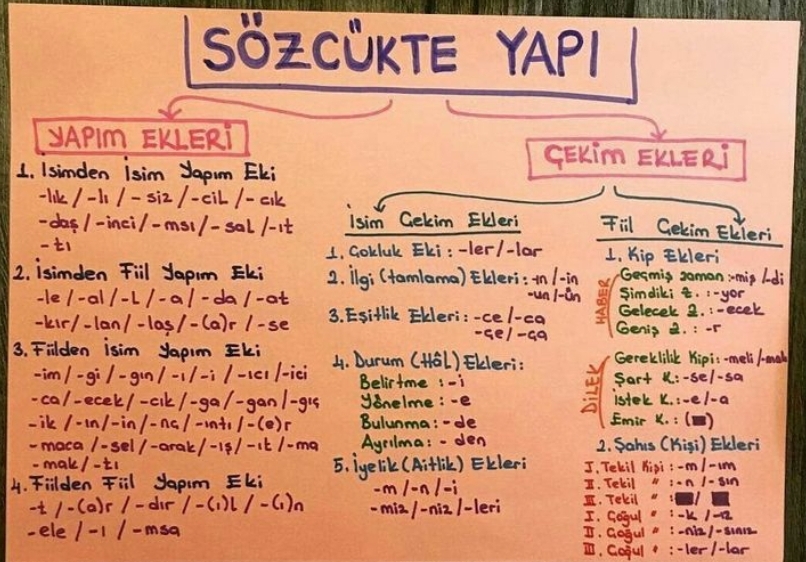 SÖZCÜKTE YAPI
YAPIM EKLERİ
1. İsimden İsim Yapım Eki
-lık / -lı / -siz / -cil / -cık
-daş / -inci / -msı / -sal / -ıt
-tı
2. İsimden Fiil Yapım Eki
-le / -al / -l / -a / -da / -at
-kır / -lan / -laş / -(a)r / -se
3. Fiilden İsim Yapım Eki
-im / -gi / -gın / -ı / -i / -ıcı / -ici
-ca / -ecek / -cık / -ga / -gan / -gıç
-ik / -ın / -in / -nç / -ıntı / -(e)r
-maca / -sel / -arak / -ış / -ıt / -ma
-mak / -tı
4. Fiilden Fiil Yapım Eki
-t / -(a)r / -dır / -(ı)l / -(ı)n
-ele / -ı / -msa
ÇEKİM EKLERİ
İsim Çekim Ekleri
1. Çokluk Eki : -ler / -lar
2. İlgi (tamlama) Ekleri : -ın / -in
-un / -ün
3. Eşitlik Ekleri : -ce / -ca
-çe / -ça
4. Durum (Hâl) Ekleri :
Belirtme : -i
Yönelme : -e
Bulunma : -de
Ayrılma : -den
5. İyelik (Aitlik) Ekleri
-m / -n / -i
-miz / -niz / -leri
Fiil Çekim Ekleri
1. Kip Ekleri
HABER
Geçmiş zaman : -miş / -di
Şimdiki z. : -yor
Gelecek z. : -ecek
Geniş z. : -r
DİLEK
Gereklilik Kipi : -meli / -malı
Şart K. : -se / -sa
İstek K. : -e / -a
Emir K. : ( )
2. Şahıs (Kişi) Ekleri
I. Tekil Kişi : -m / -ım
II. Tekil " : -n / -sın
III. Tekil " : /
I. Çoğul " : -k / -ız
II. Çoğul " : -niz / -sınız
III. Çoğul " : -ler / -lar